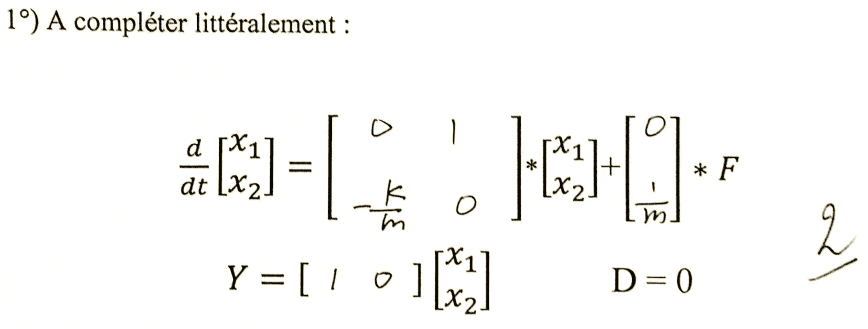 1°) A compléter littéralement :
d/dt [x₁ x₂] = [0 1 -k/m 0] * [x₁ x₂] + [0 1/m] * F
2
Y = [ 1 0 ] [x₁ x₂] D = 0